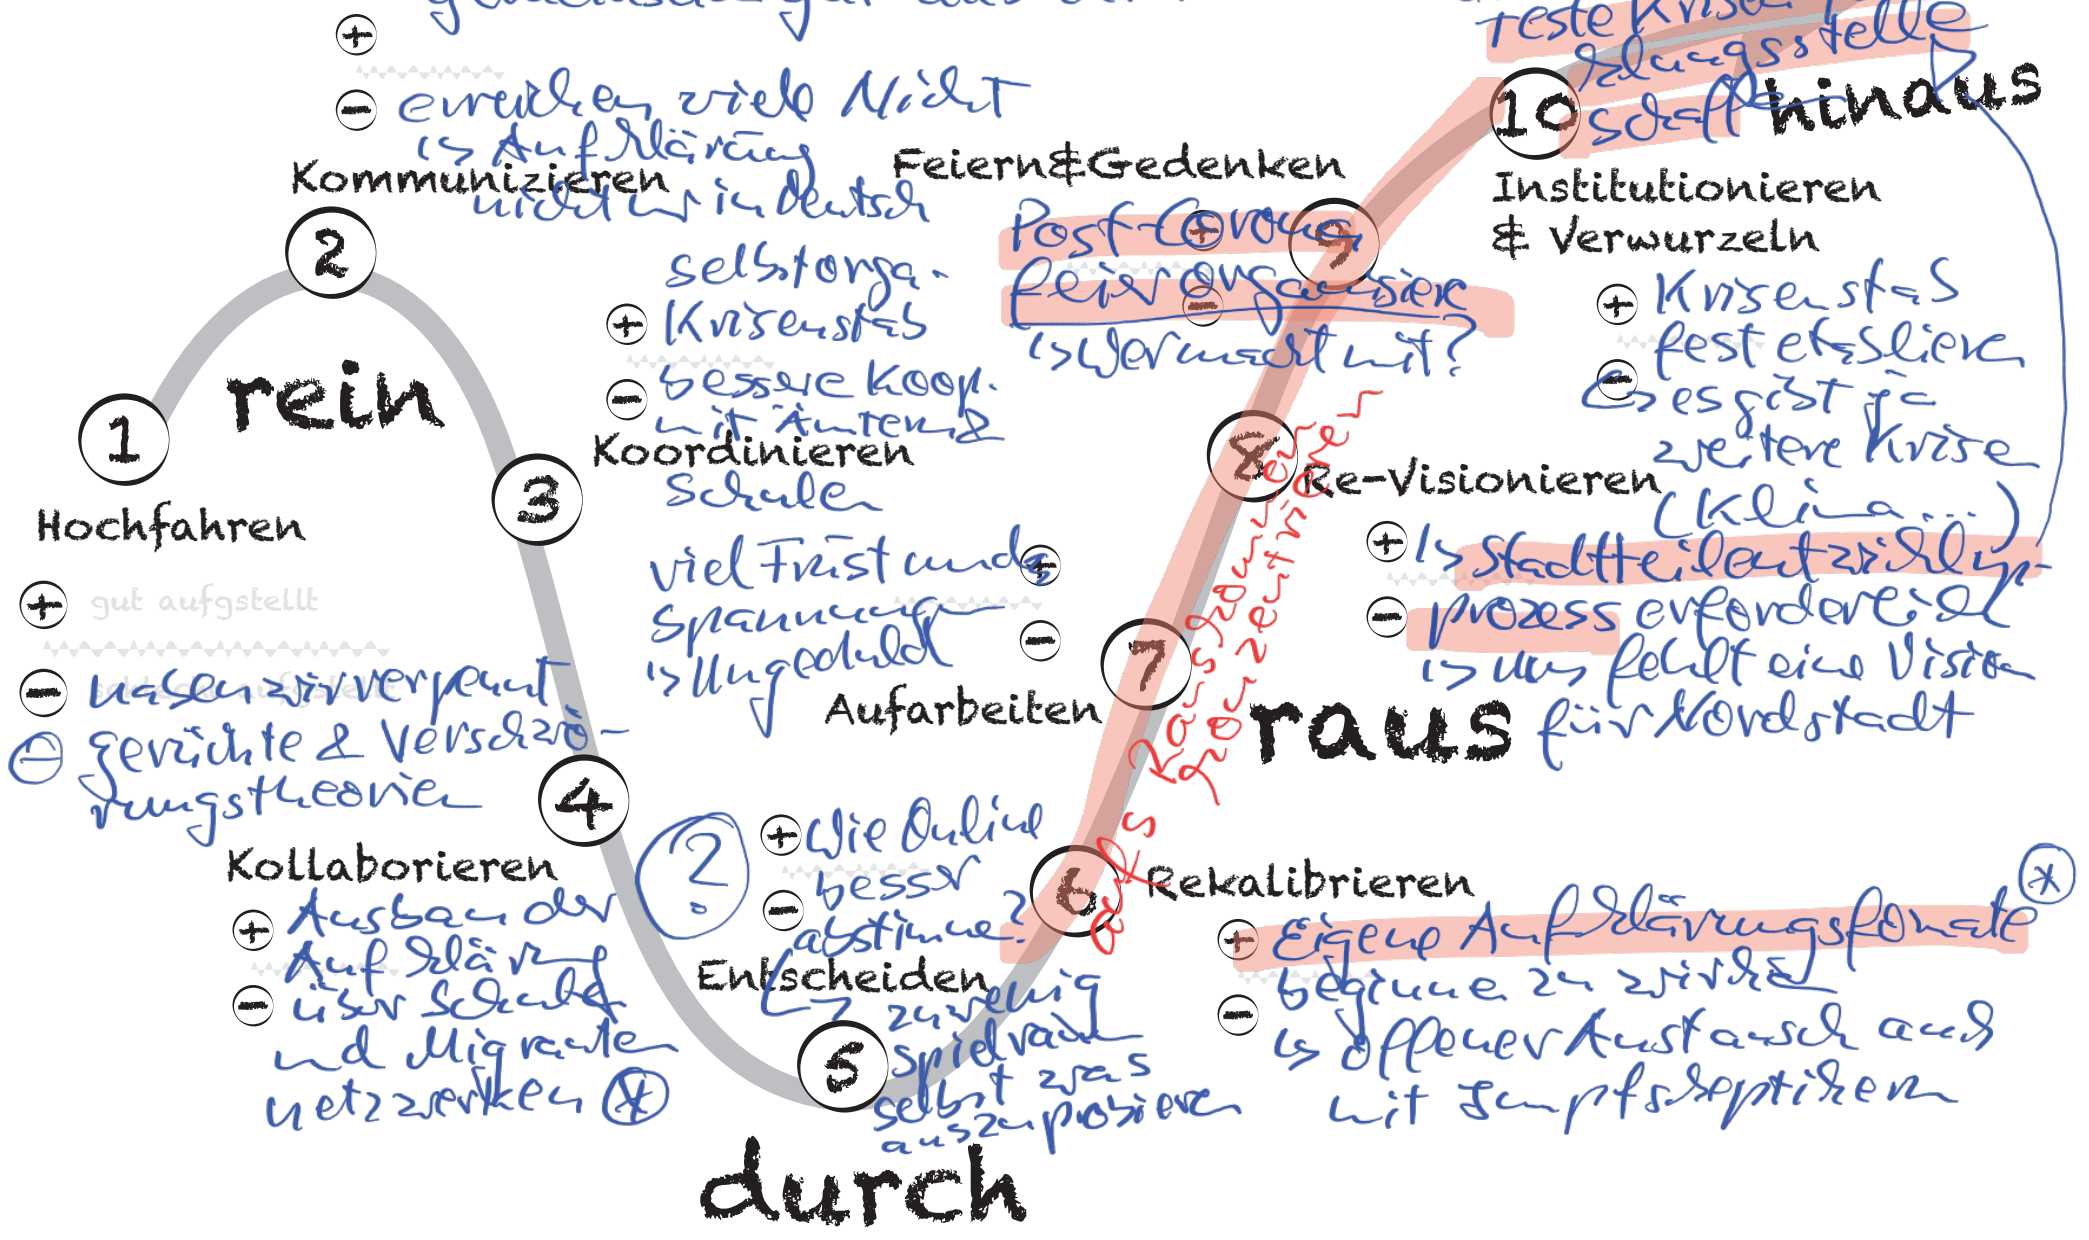 erreichen viele Nicht
↳ Aufklärung
Kommunizieren
nicht nur in Deutsch
2
rein
1
Hochfahren
gut aufgstellt
schlecht aufgstellt
haben wir verpennt
gerüchte & Verschwö-
rungstheorien
selbstorga.
Krisenstab
bessere Koop.
mit Ämtern &
Koordinieren
Schulen
3
4
Kollaborieren
Ausbau der
Aufklärung
über Schulen
und Migranten
netzwerken
?
Wie Online
besser
abstimmen?
Entscheiden
zu wenig
Spielraum
selbst was
auszuprobieren
5
durch
6
Rekalibrieren
Eigene Aufklärungsformate
beginnen zu wirken
↳ offener Austausch auch
mit Impfskeptikern
viel Frust und
Spannung
↳ Ungeduld
Aufarbeiten
7
raus
8
Re-Visionieren
↳ Stadtteilentwicklungs-
prozess erforderlich
↳ uns fehlt eine Vision
für Nordstadt
Feiern&Gedenken
Post-Corona
feier organisieren
↳ Wer macht mit?
9
10
feste Krisen
schaff
hinaus
Institutionieren
& Verwurzeln
Krisenstab
fest etablieren
↳ es gibt ja
weitere Krisen
(Klima...)